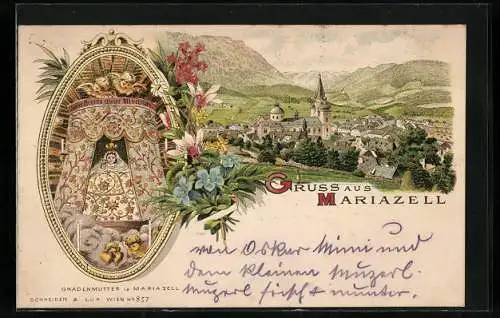 GRUSS AUS
MARIAZELL
GNADENMUTTER in MARIAZELL
SCHNEIDER & LUX WIEN No 857
von Oskar Mimi und
dem kleinen Wuzerl.
Wuzerl ist munter,